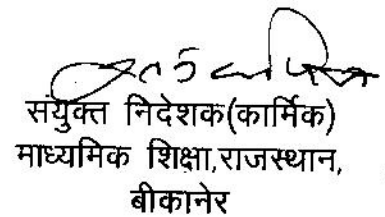 संयुक्त निदेशक(कार्मिक)
माध्यमिक शिक्षा,राजस्थान,
बीकानेर